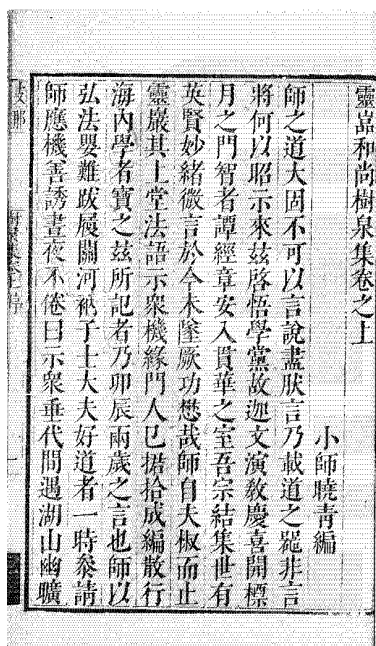 靈嵓和尚樹泉集卷之上
小師曉青編
師之道大固不可以言說盡肰言乃載道之噐非言
將何以昭示來茲啓悟學黨故迦文演敎慶喜開標
月之門智者譚經章安入貫華之室吾宗結集世有
英賢妙緒微言於今未墜厥功懋哉師自夫椒而止
靈巖其上堂法語示衆機緣門人已捃拾成編散行
海內學者寶之茲所記者乃卯辰兩歲之言也師以
弘法嬰難跋履關河衲子士大夫好道者一時叅請
師應機善誘晝夜不倦曰示衆垂代間遇湖山幽曠